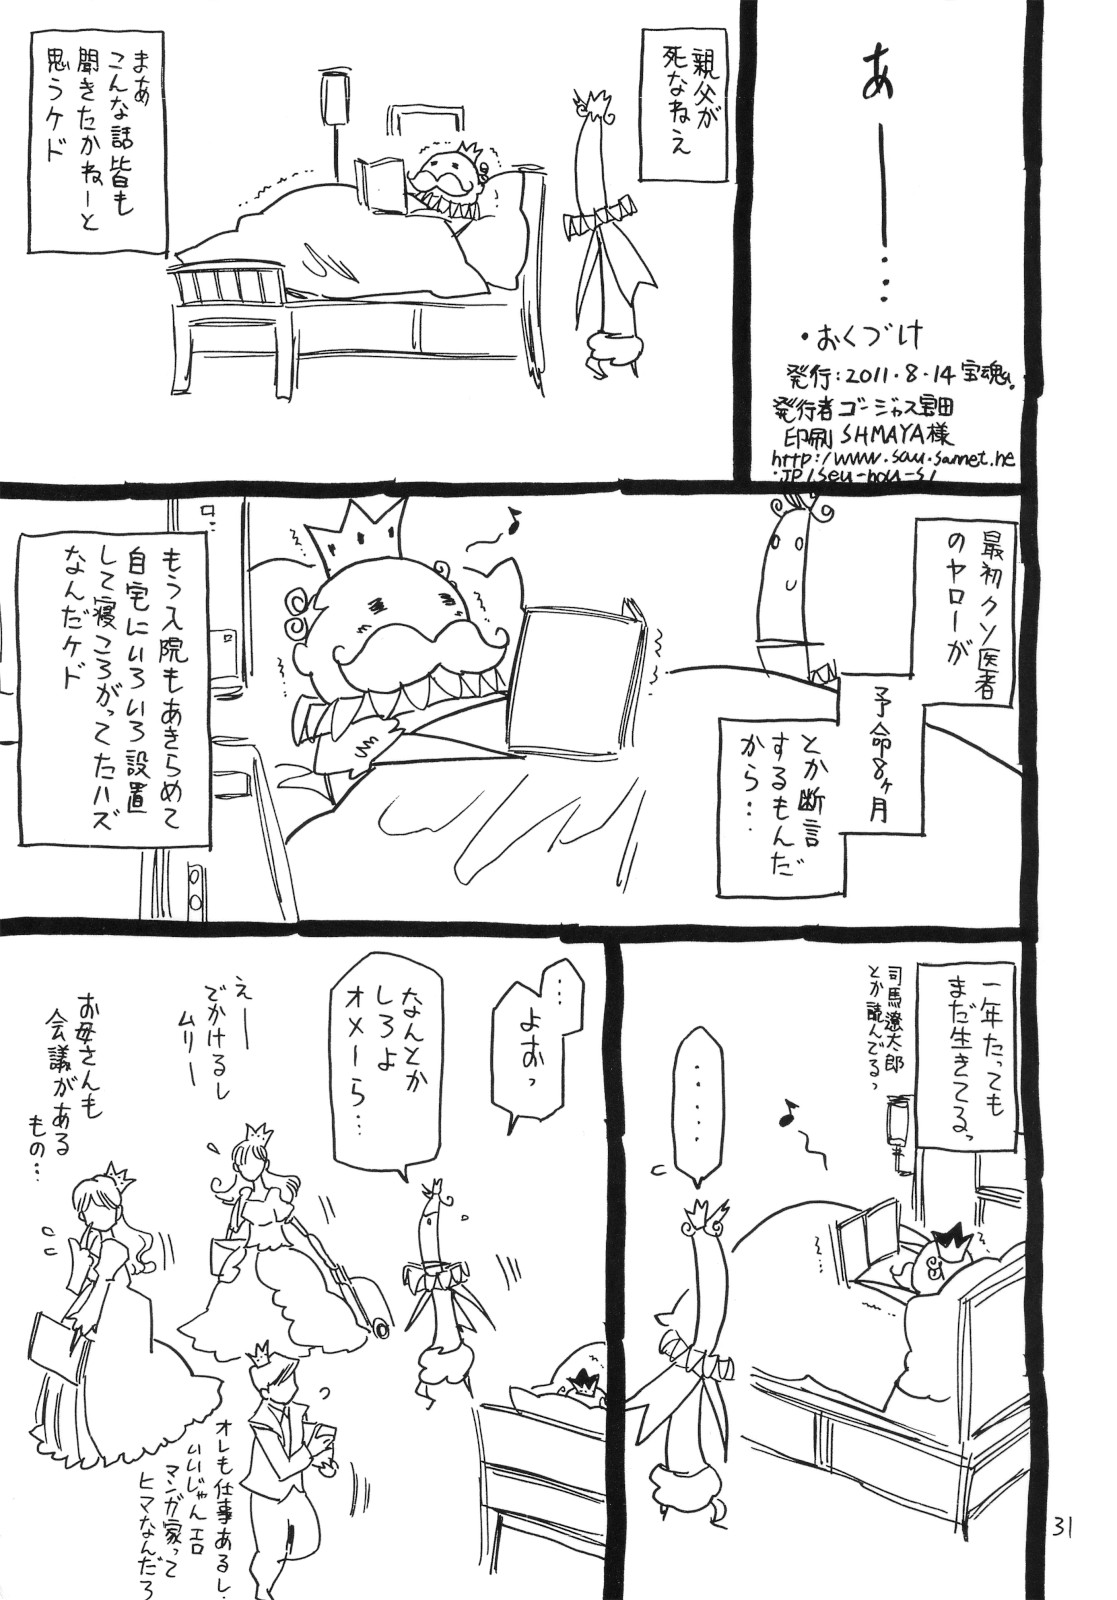 あー…‥
・おくづけ
発行:2011・8・14宝魂。
発行者ゴージャス宝田
印刷SHIMAYA様
親父が
死なねえ
まあ
こんな話皆も
聞きたかねーと
思うケド
最初クソ医者
のヤローが
予命8ヶ月
とか断言
するもんだ
から…
もう入院もあきらめて
自宅にいろいろ設置
して寝ころがってたハズ
なんだケド
一年たっても
まだ生きてるっ
司馬遼太郎
とか読んでるっ
・・・・・
…
よおっ
なんとか
しろよ
オメーら…
えー
でかけるし
ムリー
お母さんも
会議がある
もの…
オレも仕事あるし、
いいじゃんエロ
マンガ家って
ヒマなんだろ
31